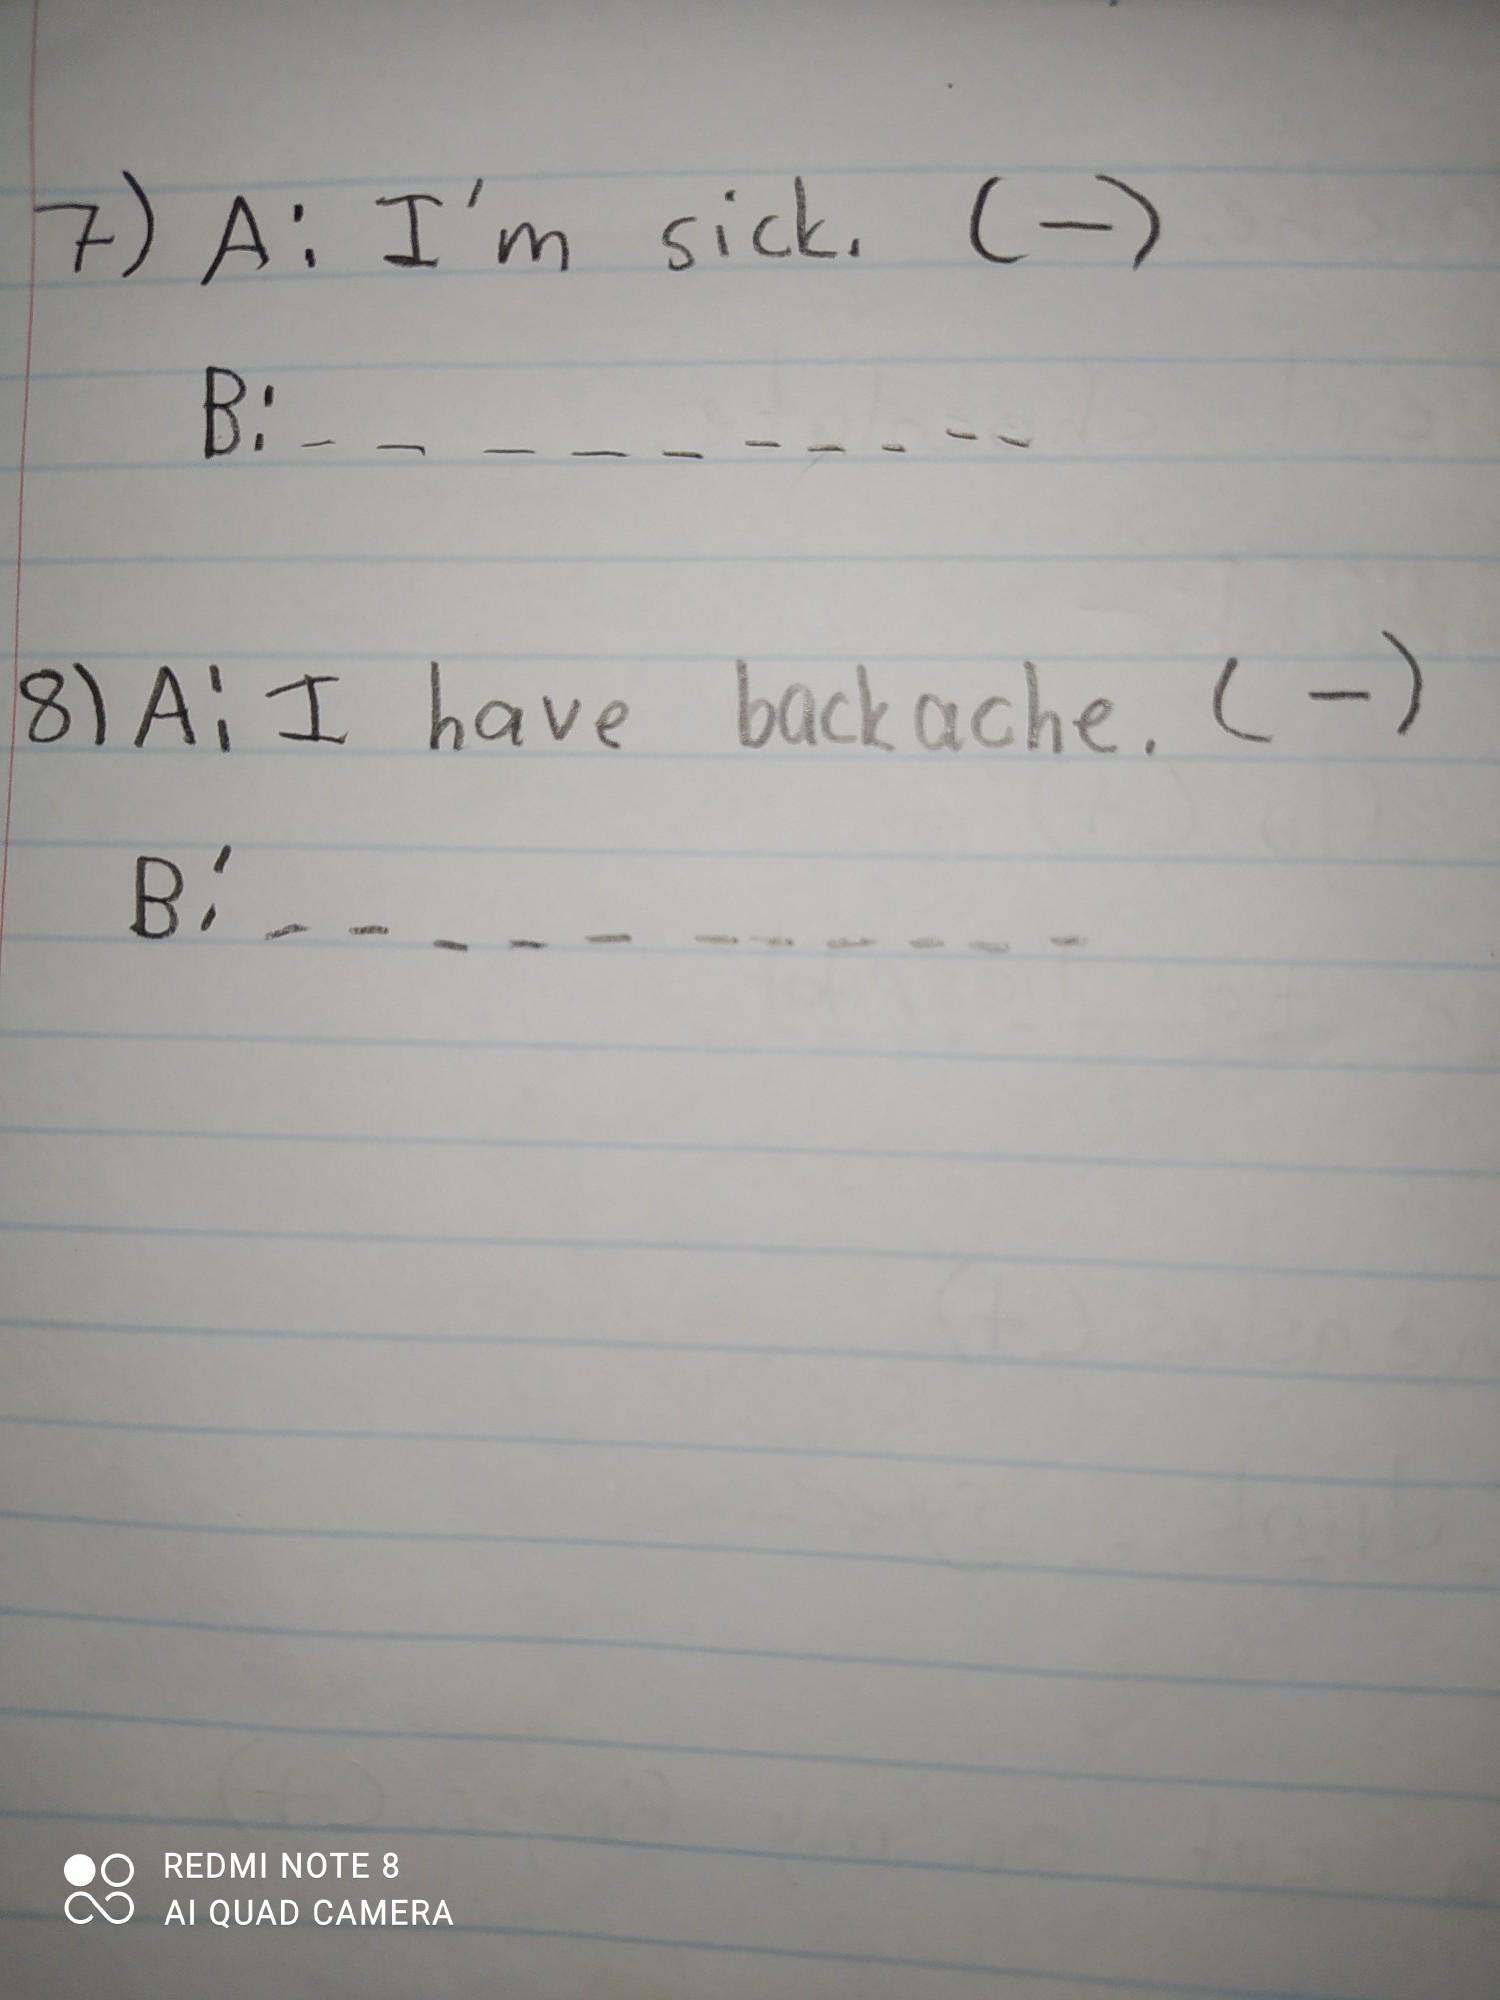 7) A: I'm sick. (-)
B: _ _ _ _ _ _ _ _ _ _
8) A: I have backache. (-)
B: _ _ _ _ _ _ _ _ _ _ _
REDMI NOTE 8
AI QUAD CAMERA